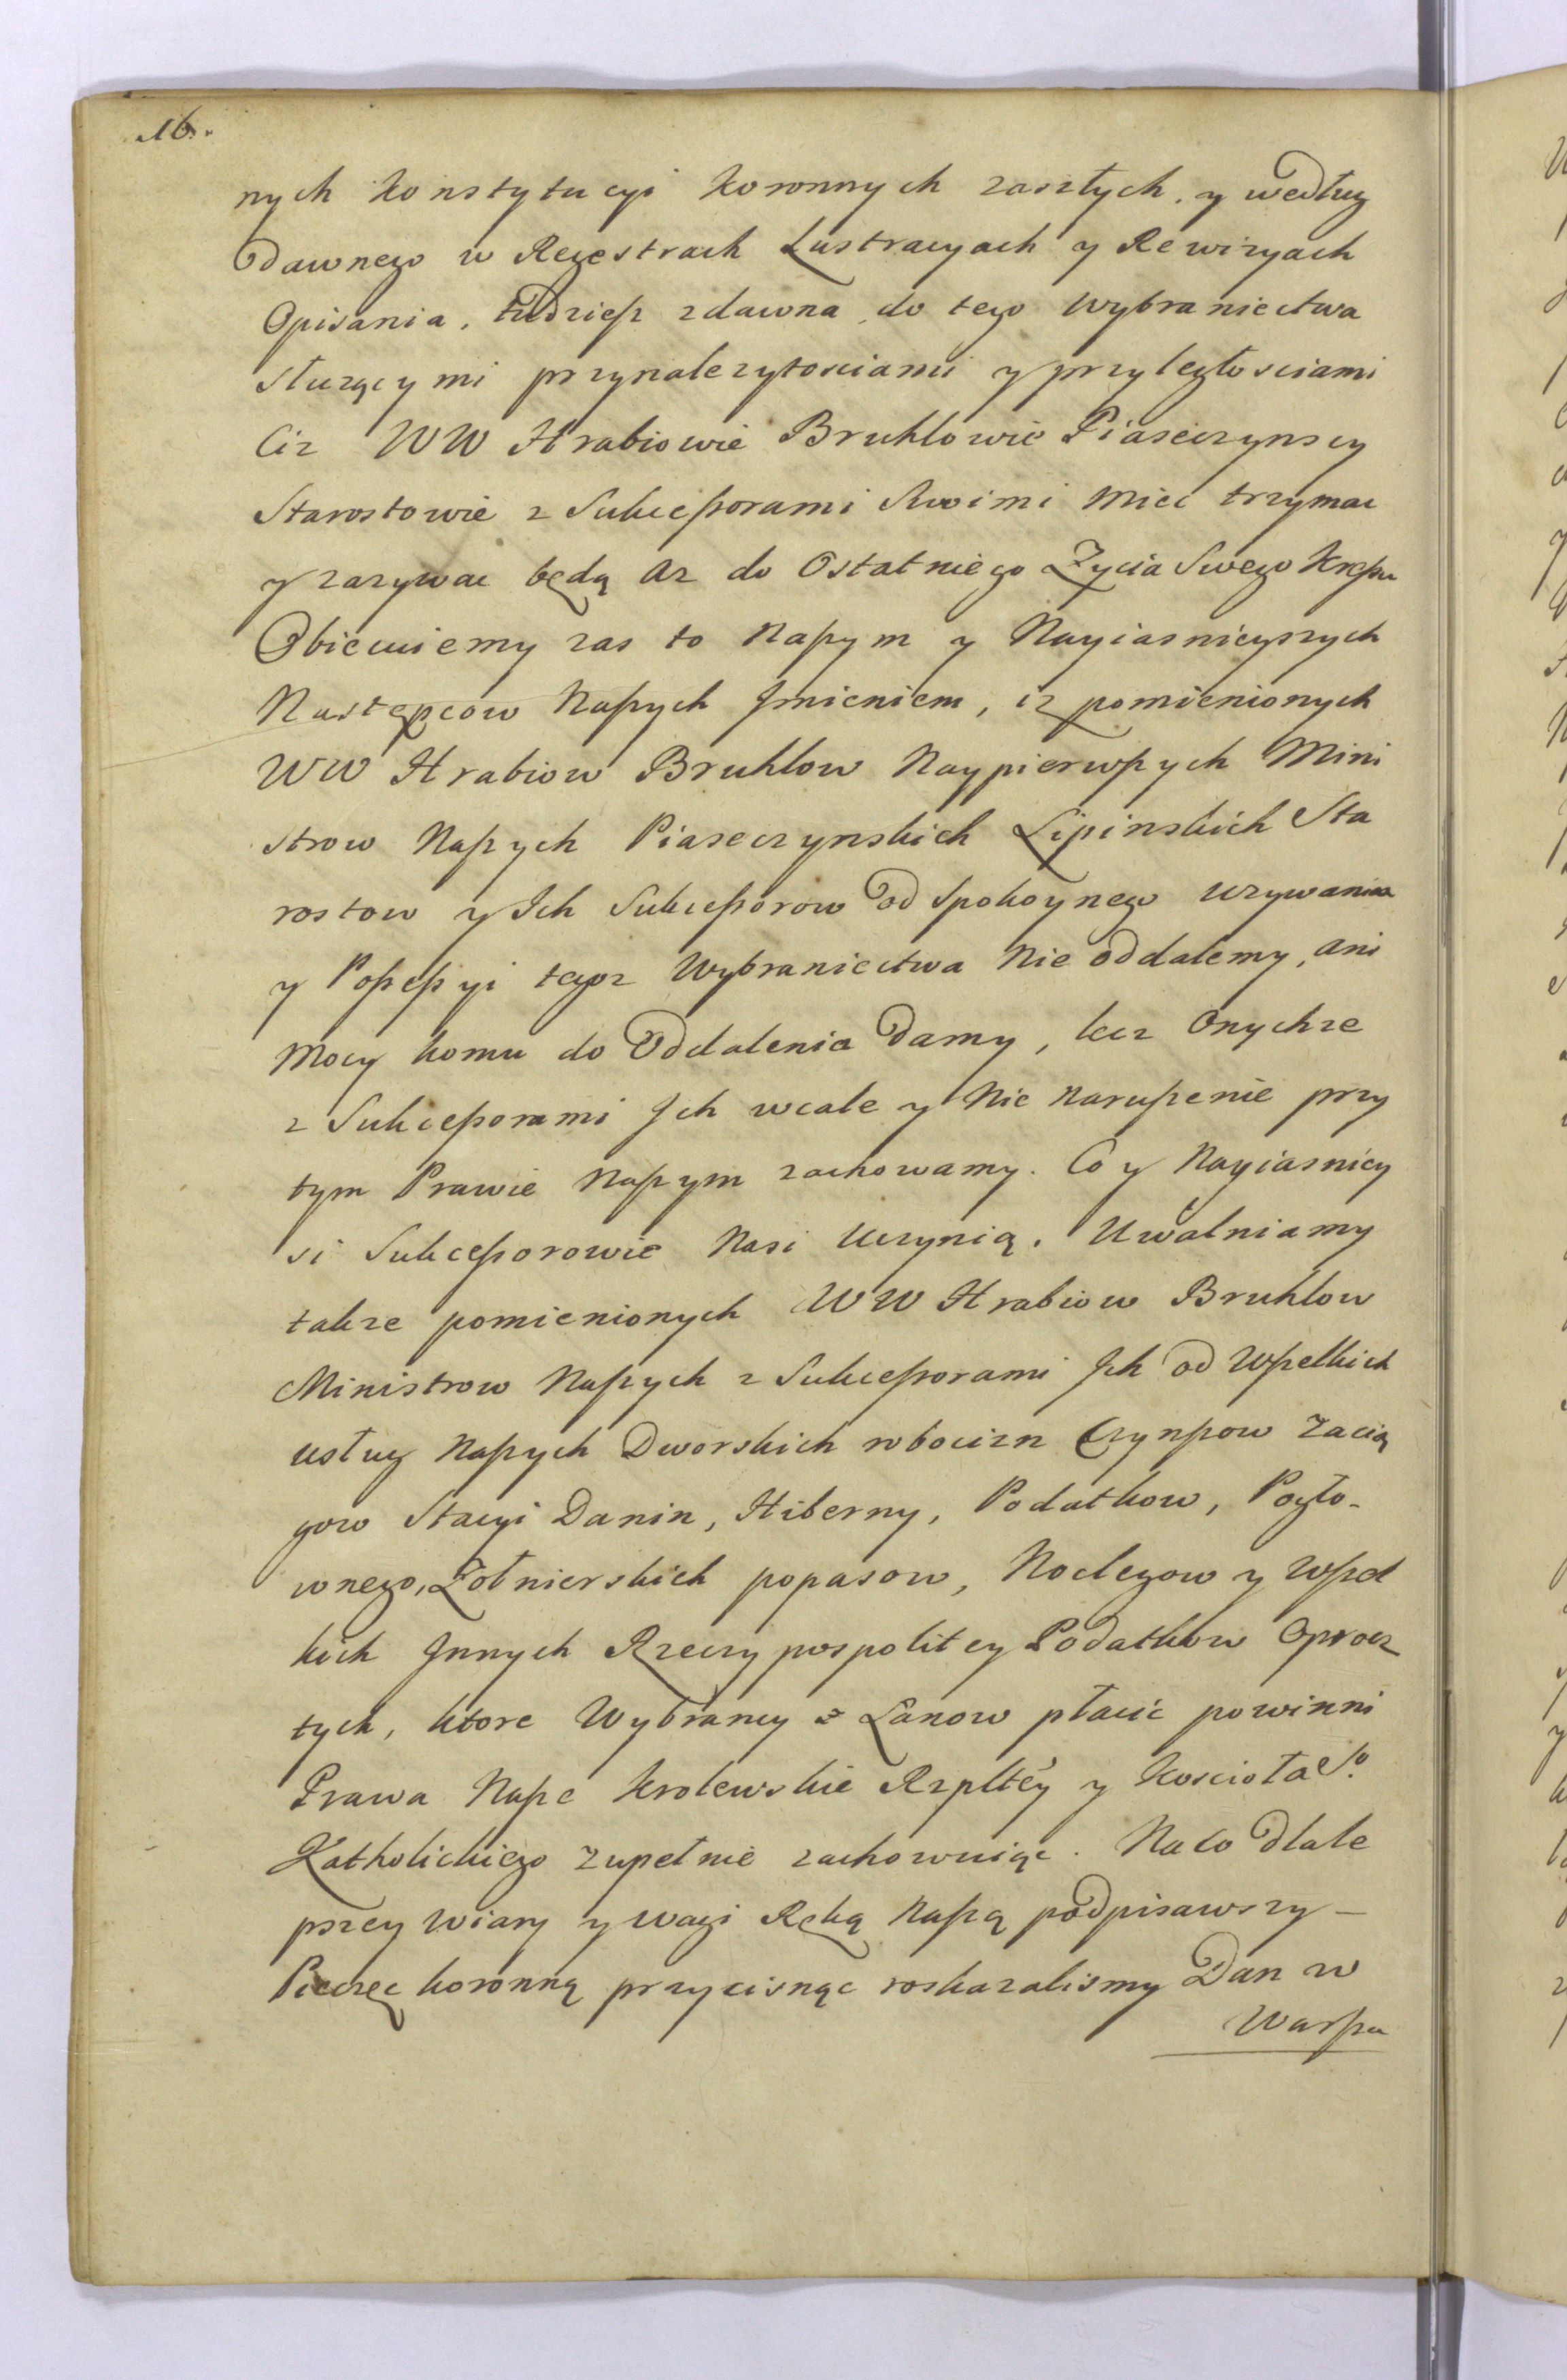 16.
nych Konstytucyi Koronnych zaszłych, y według
dawnego w Regestrach Lustracyach y Rewizyach
Opisania, tudzieß zdawna do tego Wybraniectwa
służącymi przynalezytosciami y przyległosciami
Ciz WW Hrabiowie Bruhlowie Piaseczynscy
Starostowie z Sukceßorami Swoimi Miec trzymac
y zazywac będą Az do Ostatniego Zycia Swego Kreßu
Obiecuiemy zas to Naßym y Nayiasnieyszych
Następcow Naßych Jmieniem, iz pomienionych
WW Hrabiow Bruhlow Naypierwßych Mini
strow Naßych Piaseczynskich Lipinskich Sta
rostow y Ich Sukceßorow od Spokoynego Uzywania
y Poßeßyi tegoz Wybraniectwa Nie oddalemy, ani
Mocy komu do Oddalenia Damy, lecz Onychze
z Sukceßorami Jch wcale y Nie Narußenie przy
tym Prawie Naßym zachowamy. Co y Nayiasniey
si Sukceßorowie Nasi Uczynią. Uwalniamy
takze pomienionych WW Hrabiow Bruhlow
Ministrow Naßych z Sukceßorami Jch od Wßelkich
usług Naßych Dworskich robocizn Czynßow Zacią
gow Stacyi Danin, Hiberny, Podatkow, Pogło-
wnego, Żołnierskich popasow, Noclegow y Wßel
kich Jnnych Rzeczypospolitey Podatkow Oprocz
tych, ktore Wybrancy z Łanow płacić powinni
Prawa Naße Krolewskie Rzpltéy y Koscioła So.
Katholickiego Zupełnie zachowuiąc. Na co dlale
pszey Wiary y wagi Ręką Naßą podpisawszy –
Pieczęc koronną przycisnąc roskazalismy Dan w
Warßa